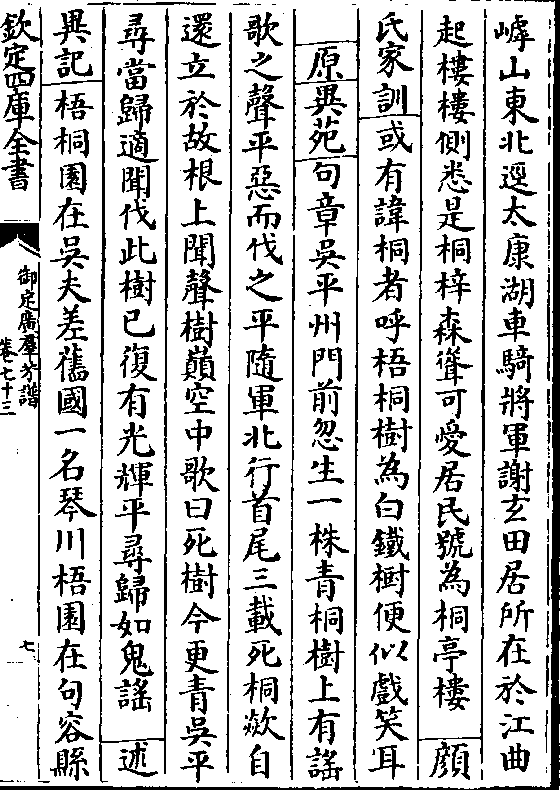 㟭山東北逕太康湖車騎將軍謝𤣥田居所在於江曲
起樓樓側悉是桐梓森聳可愛居民號為桐亭樓 顔
氏家訓或有諱桐者呼梧桐樹為白鐵樹便似戲笑耳
原異苑句章吳平州門前忽生一株青桐樹上有謡
歌之聲平惡而伐之平隨軍北行首尾三載死桐歘自
還立於故根上聞聲樹巔空中歌曰死樹今更青吳平
尋當歸適聞伐此樹已復有光輝平尋歸如鬼謡 述
異記梧桐園在吳夫差舊國一名琴川梧園在句容縣
欽定四庫全書
御定廣羣芳譜
卷七十三
七